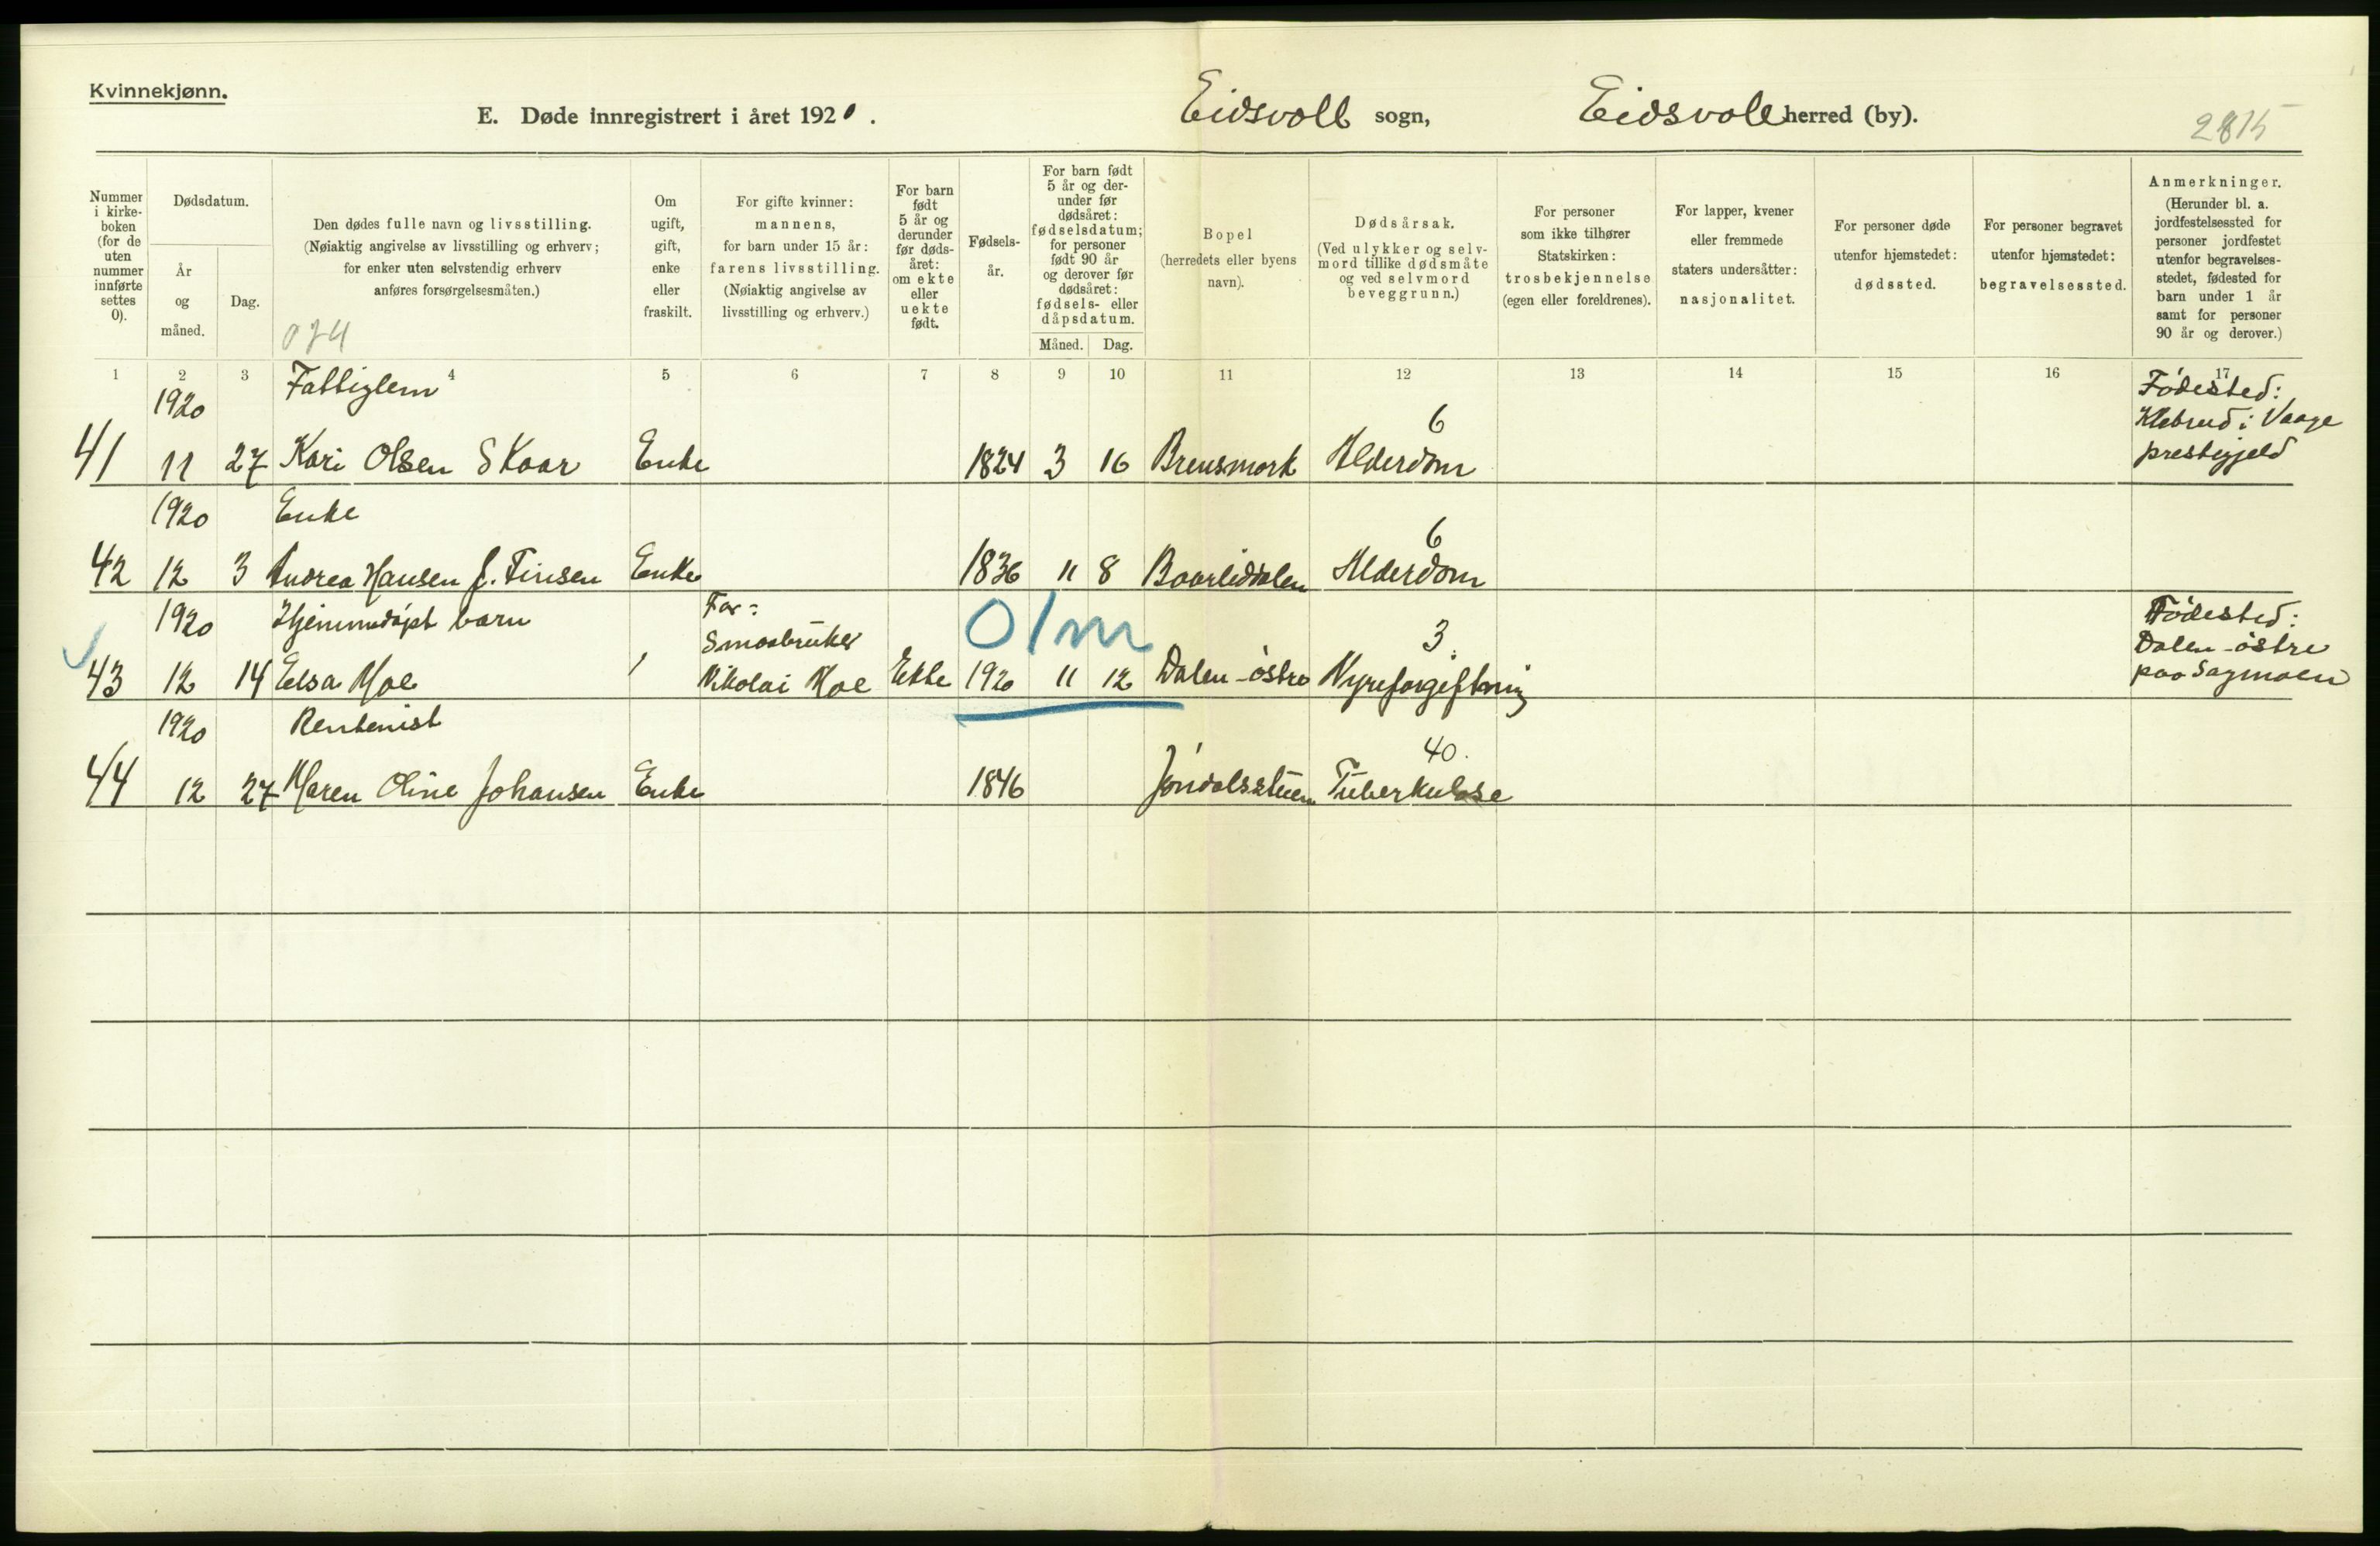 Kvinnekjønn.
E. Døde innregistrert i året 1920.
Eidsvoll sogn,
Eidsvoll herred (by).
2815
Nummer i kirke-boken (for de uten nummer innførte settes 0).
Dødsdatum.
År og måned.
Dag.
Den dødes fulle navn og livsstilling.
(Nøiaktig angivelse av livsstilling og erhverv;
for enker uten selvstendig erhverv
anføres forsørgelsesmåten.)
074
Om ugift, gift, enke eller fraskilt.
For gifte kvinner:
mannens,
for barn under 15 år:
farens livsstilling.
(Nøiaktig angivelse av
livsstilling og erhverv.)
For barn født 5 år og derunder før døds-året: om ekte eller uekte født.
Fødsels-år.
For barn født
5 år og der-
under før
dødsåret:
fødselsdatum;
for personer
født 90 år
og derover før
dødsåret:
fødsels- eller
dåpsdatum.
Måned. Dag.
Bopel
(herredets eller byens
navn).
Dødsårsak.
(Ved ulykker og selv-
mord tillike dødsmåte
og ved selvmord
beveggrunn.)
For personer
som ikke tilhører
Statskirken:
trosbekjennelse
(egen eller foreldrenes).
For lapper, kvener
eller fremmede
staters undersåtter:
nasjonalitet.
For personer døde
utenfor hjemstedet:
dødssted.
For personer begravet
utenfor hjemstedet:
begravelsessted.
Anmerkninger.
(Herunder bl. a.
jordfestelsessted for
personer jordfestet
utenfor begravelses-
stedet, fødested for
barn under 1 år
samt for personer
90 år og derover.)
1 2 3 4 5 6 7 8 9 10 11 12 13 14 15 16 17
1920 Fattiglem 6 Födested:
i Vaage
41 11 27 Kari Olsen Skaar Enke 1824 3 16 Brensmork Alderdom prestegjeld
1920 Enke 6
42 12 3 Andrea Hansen f. Finsen Enke 1836 11 8 Baarliddalen Alderdom
1920 Hjemmedöpt barn Far: 01m Födested:
Smaabruker 3. Dalen-östre
43 12 14 Elsa Moe Nikolai Moe Ekte 1920 11 12 Dalen-östre Nyreforgiftning paa Sagmoen
1920 Rentenist 40.
44 12 27 Maren Oline Johansen Enke 1846 Tuberkulose